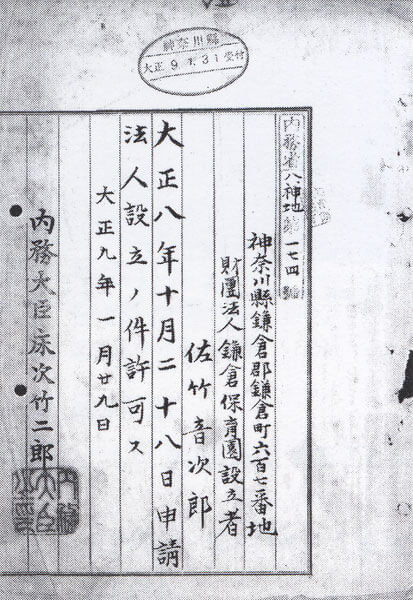 神奈川縣
大正9.1.31受付
内務省八神地第一七四號
神奈川縣鎌倉郡鎌倉町六百七番地
財團法人鎌倉保育園設立者
佐竹音次郎
大正八年十月二十八日申請
法人設立ノ件許可ス
大正九年一月廿九日
内務大臣床次竹二郎
内務大臣之印